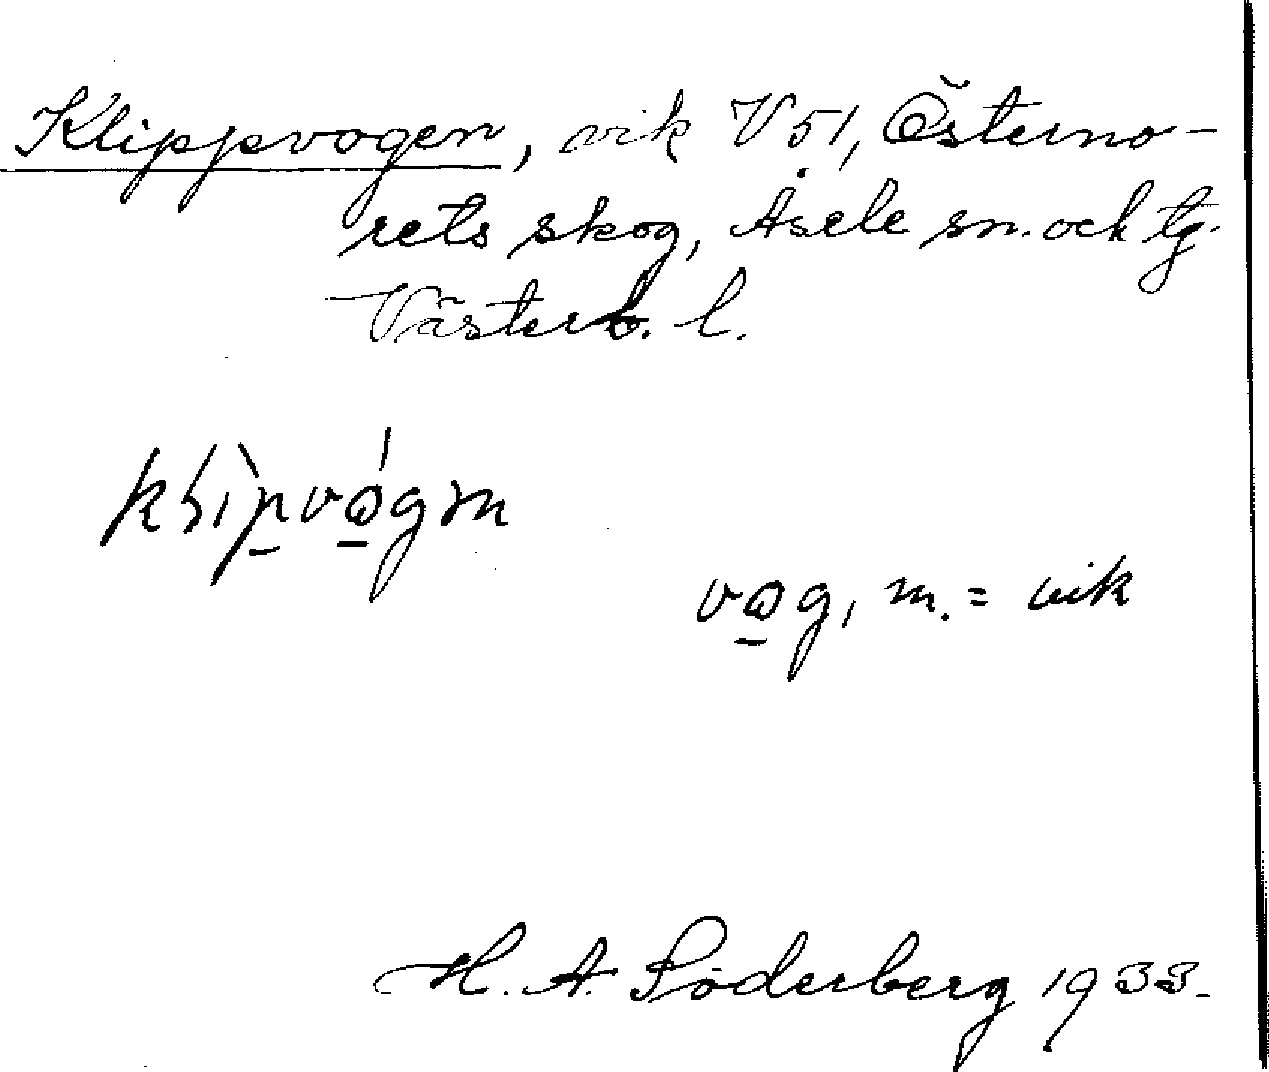 Klippvogen, vik V 51, Österno-
rets skog, Åsele sn. och tg.
Västerb. l.
vωg, m. = vik
H. A. Söderberg 1933.